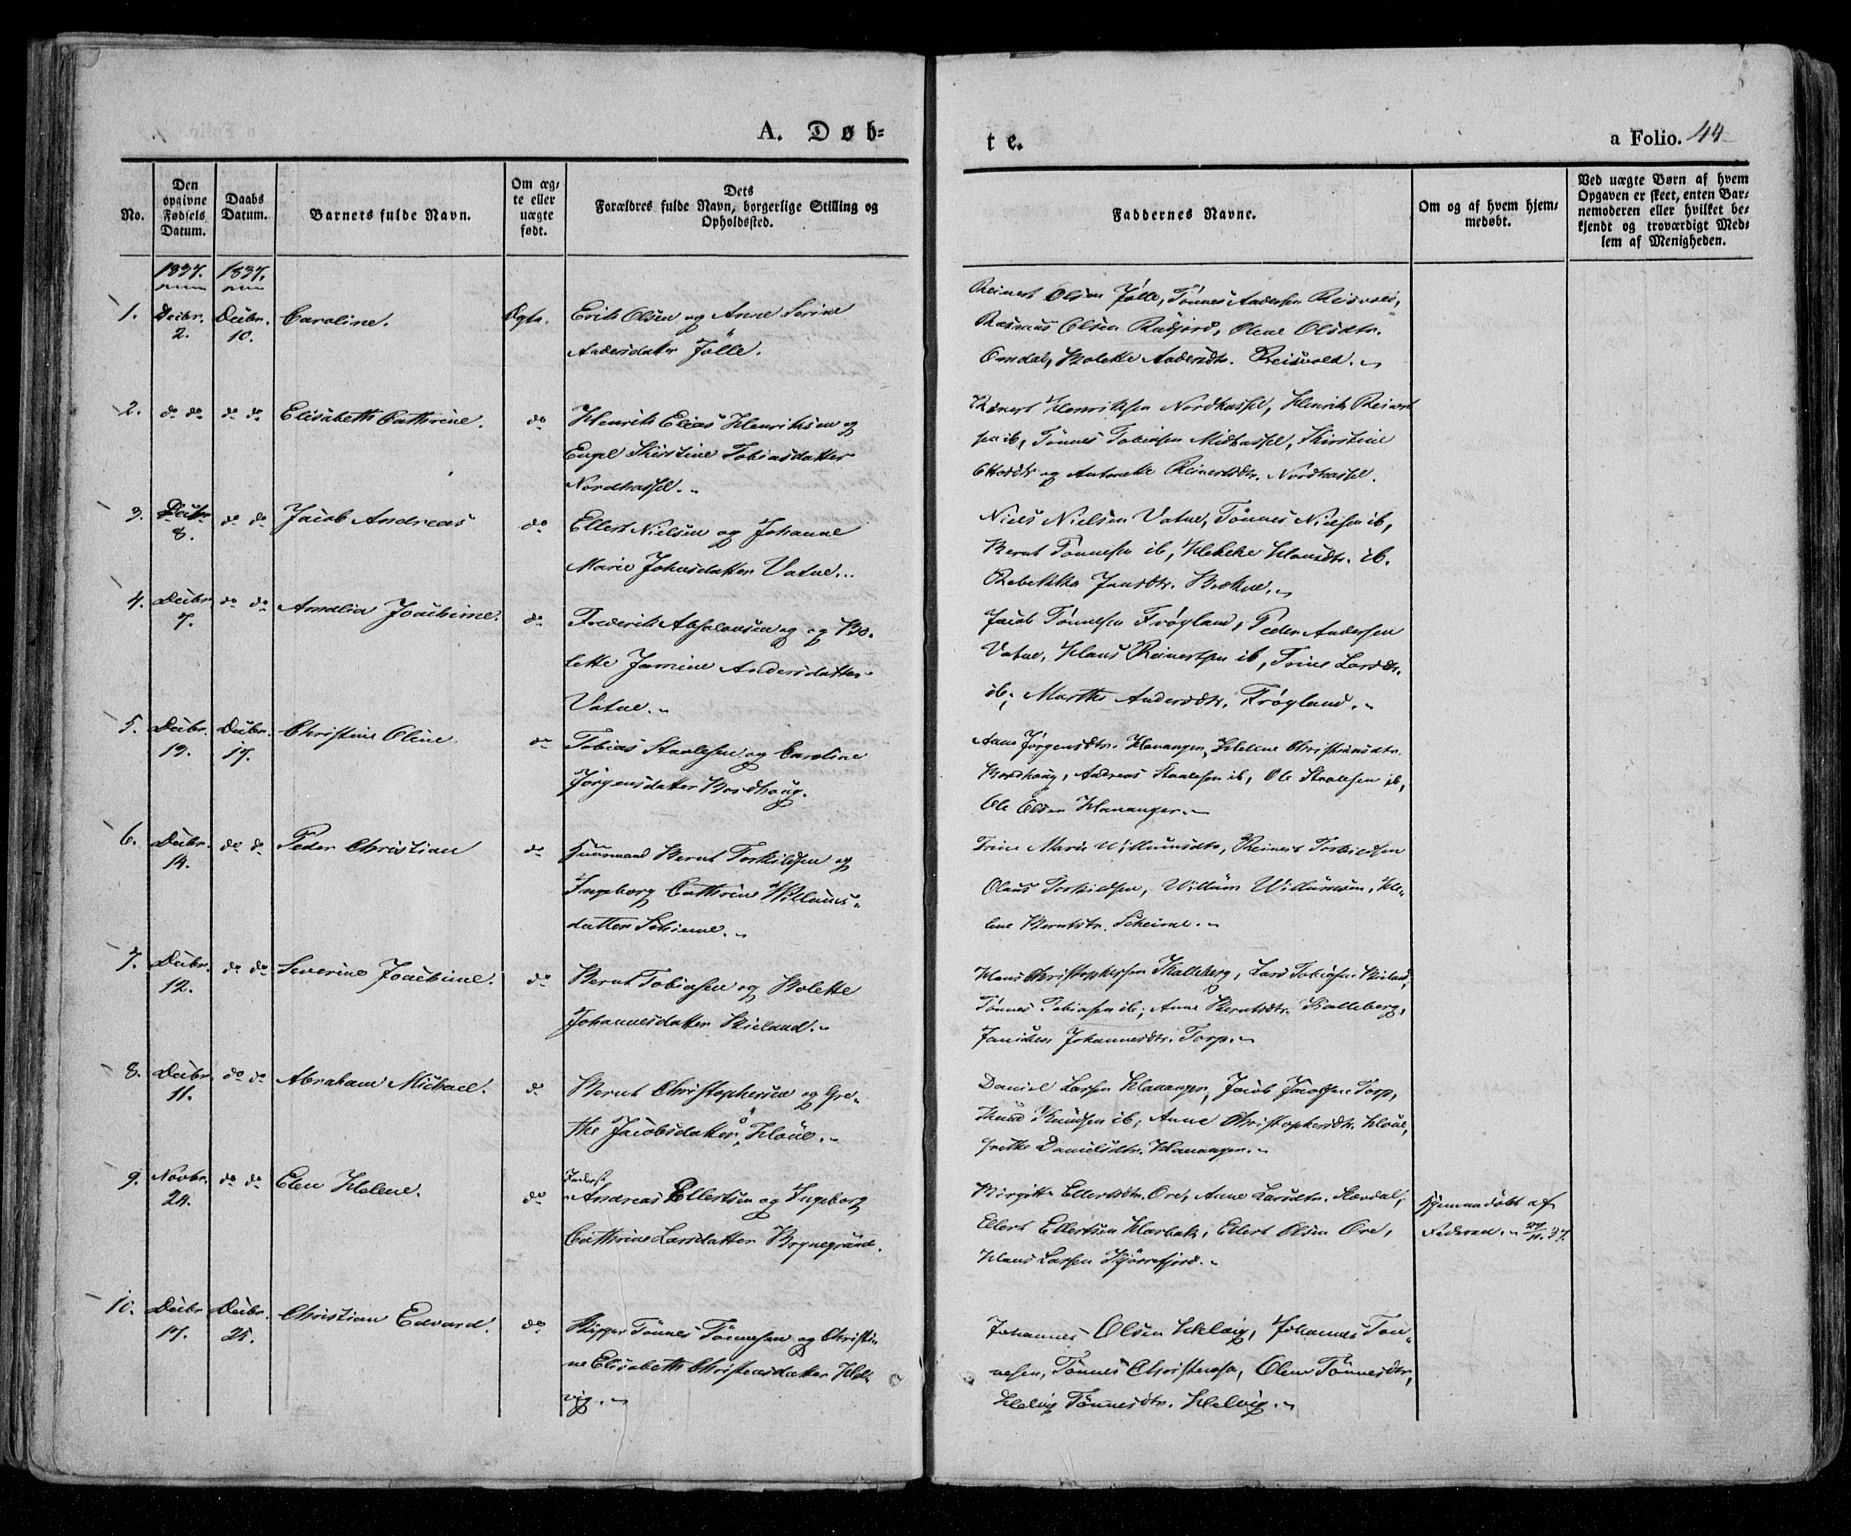 A. Døb-
te.
a Folio. 44
No.
Den opgivne Fødsels Datum.
Daabs Datum.
Barnets fulde Navn.
Om ægte eller uægte født.
Dets Forældres fulde Navn, borgerlige Stilling og Opholdssted.
Faddernes Navne.
Om og af hvem hjemmedøbt.
Ved uægte Børn af hvem Opgaven er skeet, enten Barnemoderen eller hvilket bekjendt og troværdigt Medlem af Menigheden.
1837. 1837.
1. Decbr. 2. Decbr. 10. Caroline. Ægte.
Erich Olsen og Anne Serine
Andersdatter Jølle.
Reinert Olsen Jølle, Tønnes Andersen
Rasmus Olsen Rudjord, Olene Olsdtr.
Omdal, Bolette Andersdtr.
2. do do do do Elisabeth Cathrine. do
Henrich Elias Henriksen og
Engel Kirstine Tobiasdatter
Nordhassel.
Reinert Henriksen Nordhassel, Henrik Reinert
sen ib, Tønnes Tobiasen Midhassel, Kirstine
og Antonette Reinertsdtr. Nordhassel.
3. Decbr. 8. do do Jacob Andreas do
Ellert Nielsen og Johanne
Marie Johnsdatter Vatne.
Niels Nielsen Vatne, Tønnes Nielsen ib,
Bernt Tønnesen ib, Hansdtr. ib.
Rebekka Jansdtr.
4. Decbr. 7. do do Amalia Joachime. do
Frederik Absalonsen og og Bo-
lette Jamine Andersdatter
Vatne.
Jacob Tønnesen Frøyland, Peder Andersen
Vatne, Hans Reinertsen ib, Trine Larsdtr.
ib, Marthe Andersdtr. Frøyland.
5. Decbr. Decbr. 17. Christine Oline. do
Tobias Staalesen og Caroline
Jørgensdatter Bordhoug.
Anne Jørgensdtr. Hananger, Helene Christensdtr.
Bordhoug, Andreas Staalesen ib, Ole Staalesen ib,
Ole Olsen Hananger.
6. Decbr. 14. do do Peder Christian do
Huusmand Bernt Torkildsen og
Ingeborg Cathrine Willums-
datter Scheime.
Trine Marie Willumsdtr, Reinert Torkildsen
Olaus Torkildsen, Willum Willumsen, He-
lene Berntsdtr. Scheime.
7. Decbr. 12. do do Severine Joachime. do
Bernt Tobiasen og Bolette
Johannesdatter Skieland.
Hans Christophersen Kalleberg, Lars Tobiasen Skieland,
Tønnes Tobiasen ib, Anne Berntsdtr. Kalleberg,
Johannesdtr. Torp.
8. Decbr. 11. do do Abraham Michael. do
Bernt Christophersen og Gre-
the Jacobsdatter, Houe.
Daniel Larsen Hananger, Jacob Jacobsen Torp,
Knud Knudsen ib, Anne Christophersdtr. Houe,
Grethe Danielsdtr. Hananger.
9. Novbr. 24. do do Elen Helene. do
Inderst
Andreas Ellertsen og Ingeborg
Cathrine Larsdatter Brynegrund.
Birgitte Ellertsdtr. Ore, Anne Larsdtr.
Ellert Ellertsen Harbak, Ellert Olsen Ore,
Hans Larsen Kjørrefjord.
Hjemmedøbt af
Faderen. 27/11 37.
10. Decbr. 17. Decbr. 25. Christian Edvard. do
Skipper Tønnes Tønnesen og Christi-
ne Elisabeth Christensdatter Hel-
vig.
Johannes Olsen Helvig, Johannes Tøn-
nesen, Tønnes Christensen, Olene Tønnesdtr,
Helvig Tønnesdtr. Helvig.